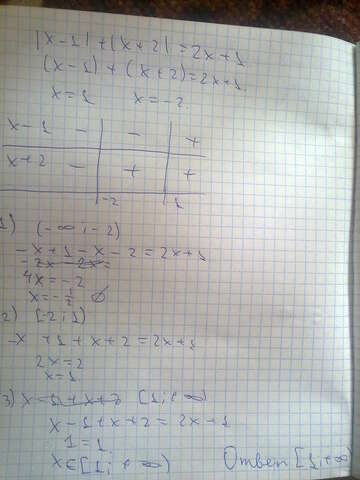 |x-1|+|x+2|=2x+1
(x-1)+(x+2)=2x+1
x=1 x=-2
x-1 - - +
x+2 - + +
-2 1
1) (-∞;-2)
-x+1-x-2=2x+1
-2x-2x=
4x=-2
x=-1/2 ∅
2) [-2;1)
-x+1+x+2=2x+1
2x=2
x=1
3) x-1+x+2 [1;+∞)
x-1+x+2=2x+1
1=1
x∈[1;+∞)
Ответ [1+∞